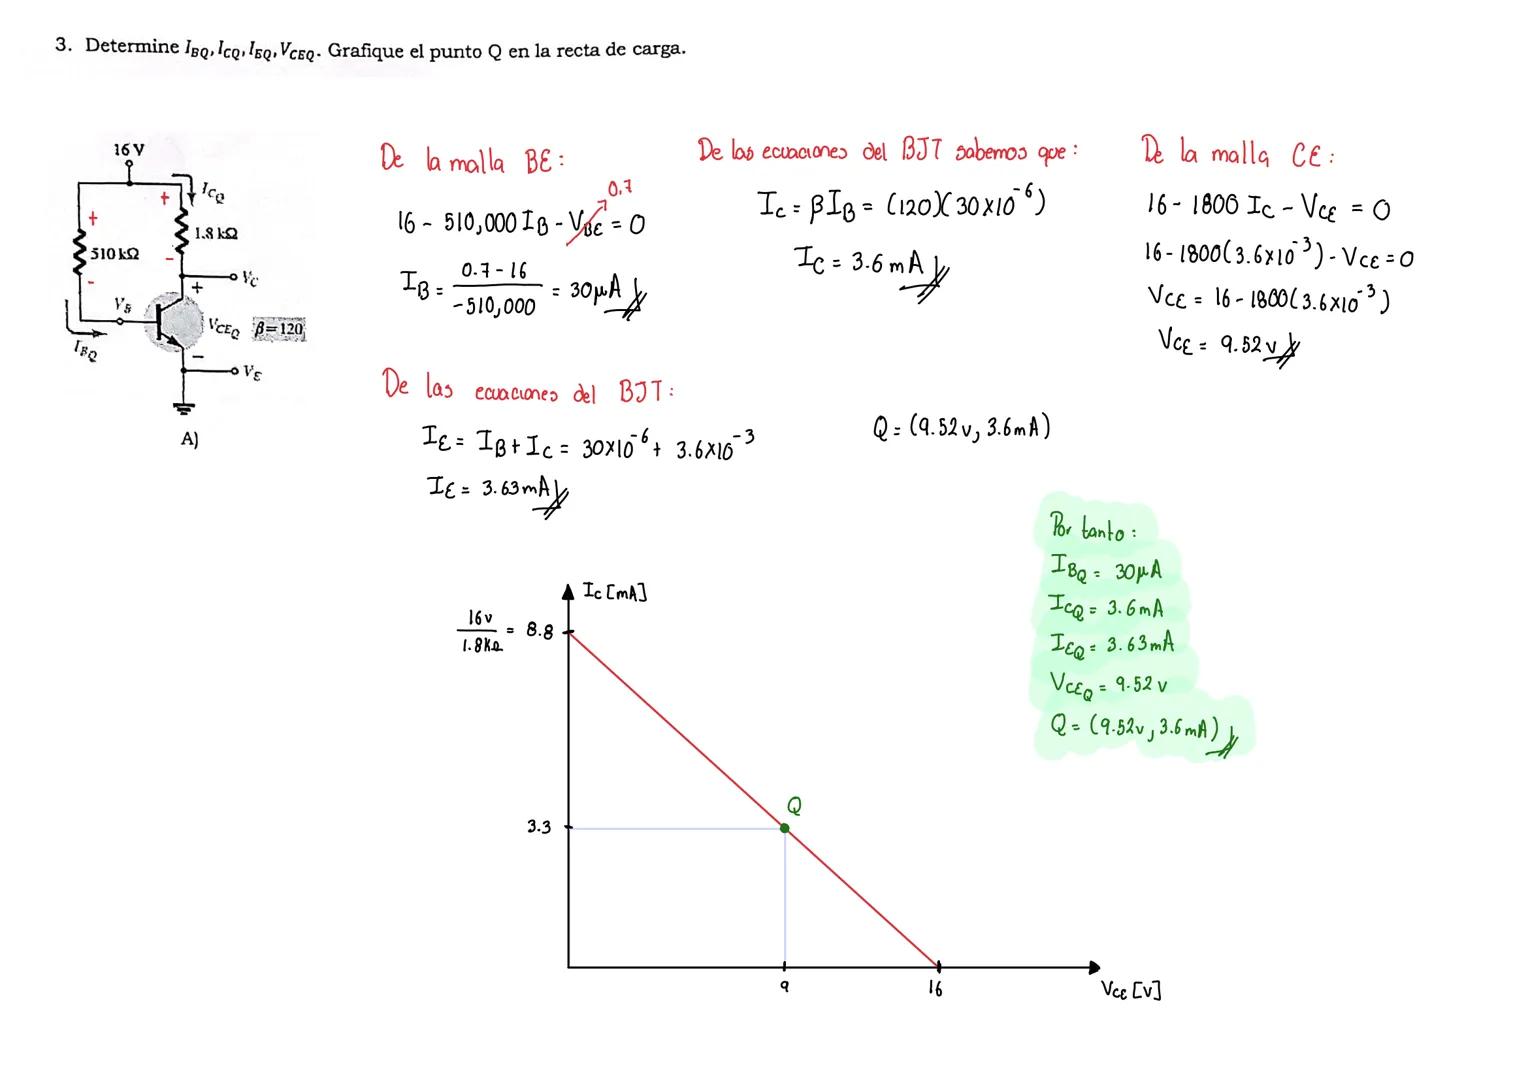 3. Determine I_BQ, I_CQ, I_EQ, V_CEQ. Grafique el punto Q en la recta de carga.
16 V
I_CQ
+
+
1.8 kΩ
510 kΩ
-
-
V_C
+
V_B
V_CEQ β=120
I_BQ
-
V_E
A)
De la malla BE:
0.7
16 - 510,000 I_B - V_BE = 0
I_B = (0.7 - 16)/(-510,000) = 30μA
De las ecuaciones del BJT sabemos que:
I_C = βI_B = (120)(30x10^-6)
I_C = 3.6 mA
De la malla CE:
16 - 1800 I_C - V_CE = 0
16 - 1800(3.6x10^-3) - V_CE = 0
V_CE = 16 - 1800(3.6x10^-3)
V_CE = 9.52 v
De las ecuaciones del BJT:
I_E = I_B + I_C = 30x10^-6 + 3.6x10^-3
I_E = 3.63 mA
Q = (9.52 v, 3.6 mA)
Por tanto:
I_BQ = 30μA
I_CQ = 3.6 mA
I_EQ = 3.63 mA
V_CEQ = 9.52 v
Q = (9.52 v, 3.6 mA)
I_C [mA]
16 v/1.8 KΩ = 8.8
Q
3.3
9
16
V_CE [v]